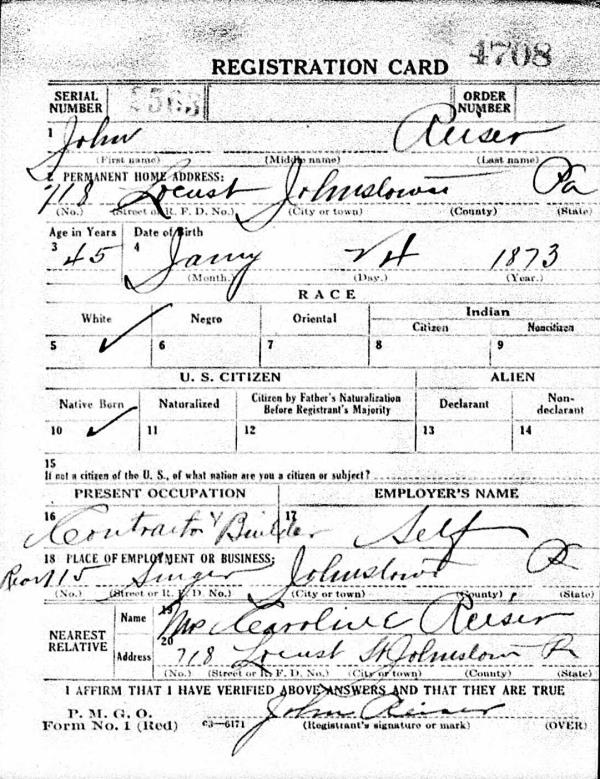 4708
REGISTRATION CARD
SERIAL NUMBER
ORDER NUMBER
1 John Reiser
(First name) (Middle name) (Last name)
2 PERMANENT HOME ADDRESS:
718 Locust Johnstown Pa
(No.) (Street or R. F. D. No.) (City or town) (County) (State)
Age in Years Date of Birth
3 45 4 Jany 24 1873
(Month.) (Day.) (Year.)
RACE
White Negro Oriental Indian
Citizen Noncitizen
5 ✓ 6 7 8 9
U. S. CITIZEN ALIEN
Native Born Naturalized Citizen by Father's Naturalization Before Registrant's Majority Declarant Non-declarant
10 ✓ 11 12 13 14
15
If not a citizen of the U. S., of what nation are you a citizen or subject?
PRESENT OCCUPATION EMPLOYER'S NAME
16 Contractor & Builder 17 Self
18 PLACE OF EMPLOYMENT OR BUSINESS:
Rear 715 Singer Johnstown Pa
(No.) (Street or R. F. D. No.) (City or town) (County) (State)
NEAREST RELATIVE
Name 19 Mrs Caroline Reiser
Address 20 718 Locust St Johnstown Pa
(No.) (Street or R. F. D. No.) (City or town) (County) (State)
I AFFIRM THAT I HAVE VERIFIED ABOVE ANSWERS AND THAT THEY ARE TRUE
P. M. G. O.
Form No. 1 (Red) c3—6171 John Reiser
(Registrant's signature or mark) (OVER)